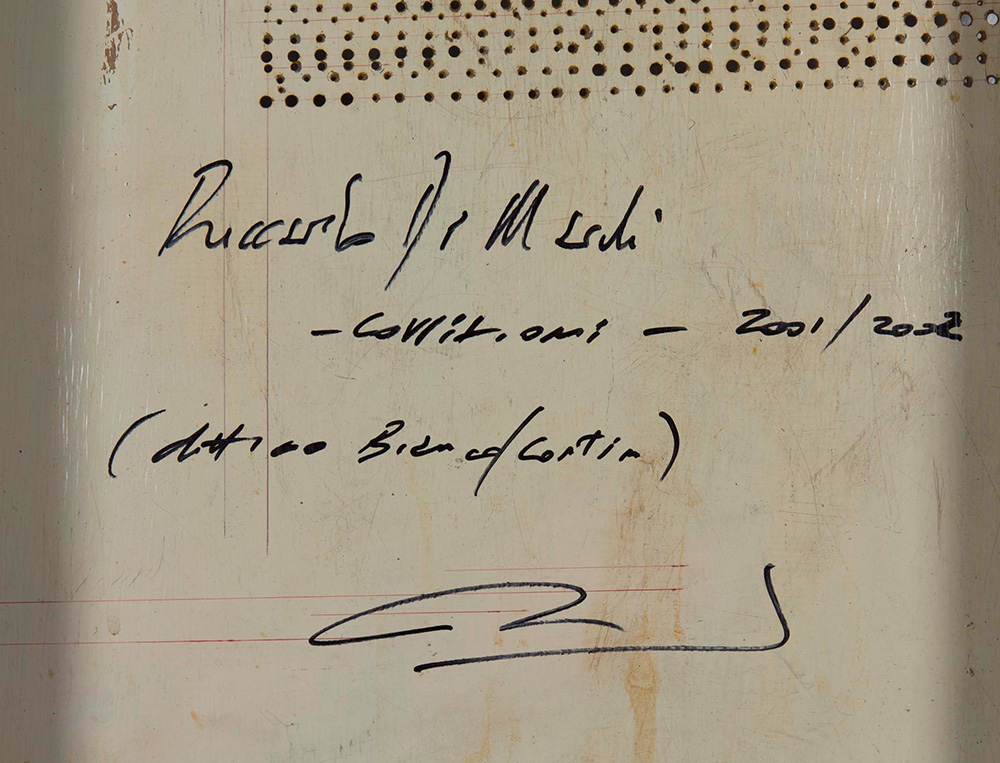 Riccardo De Marchi
2001/2002
(dittico Bianco/Corten)